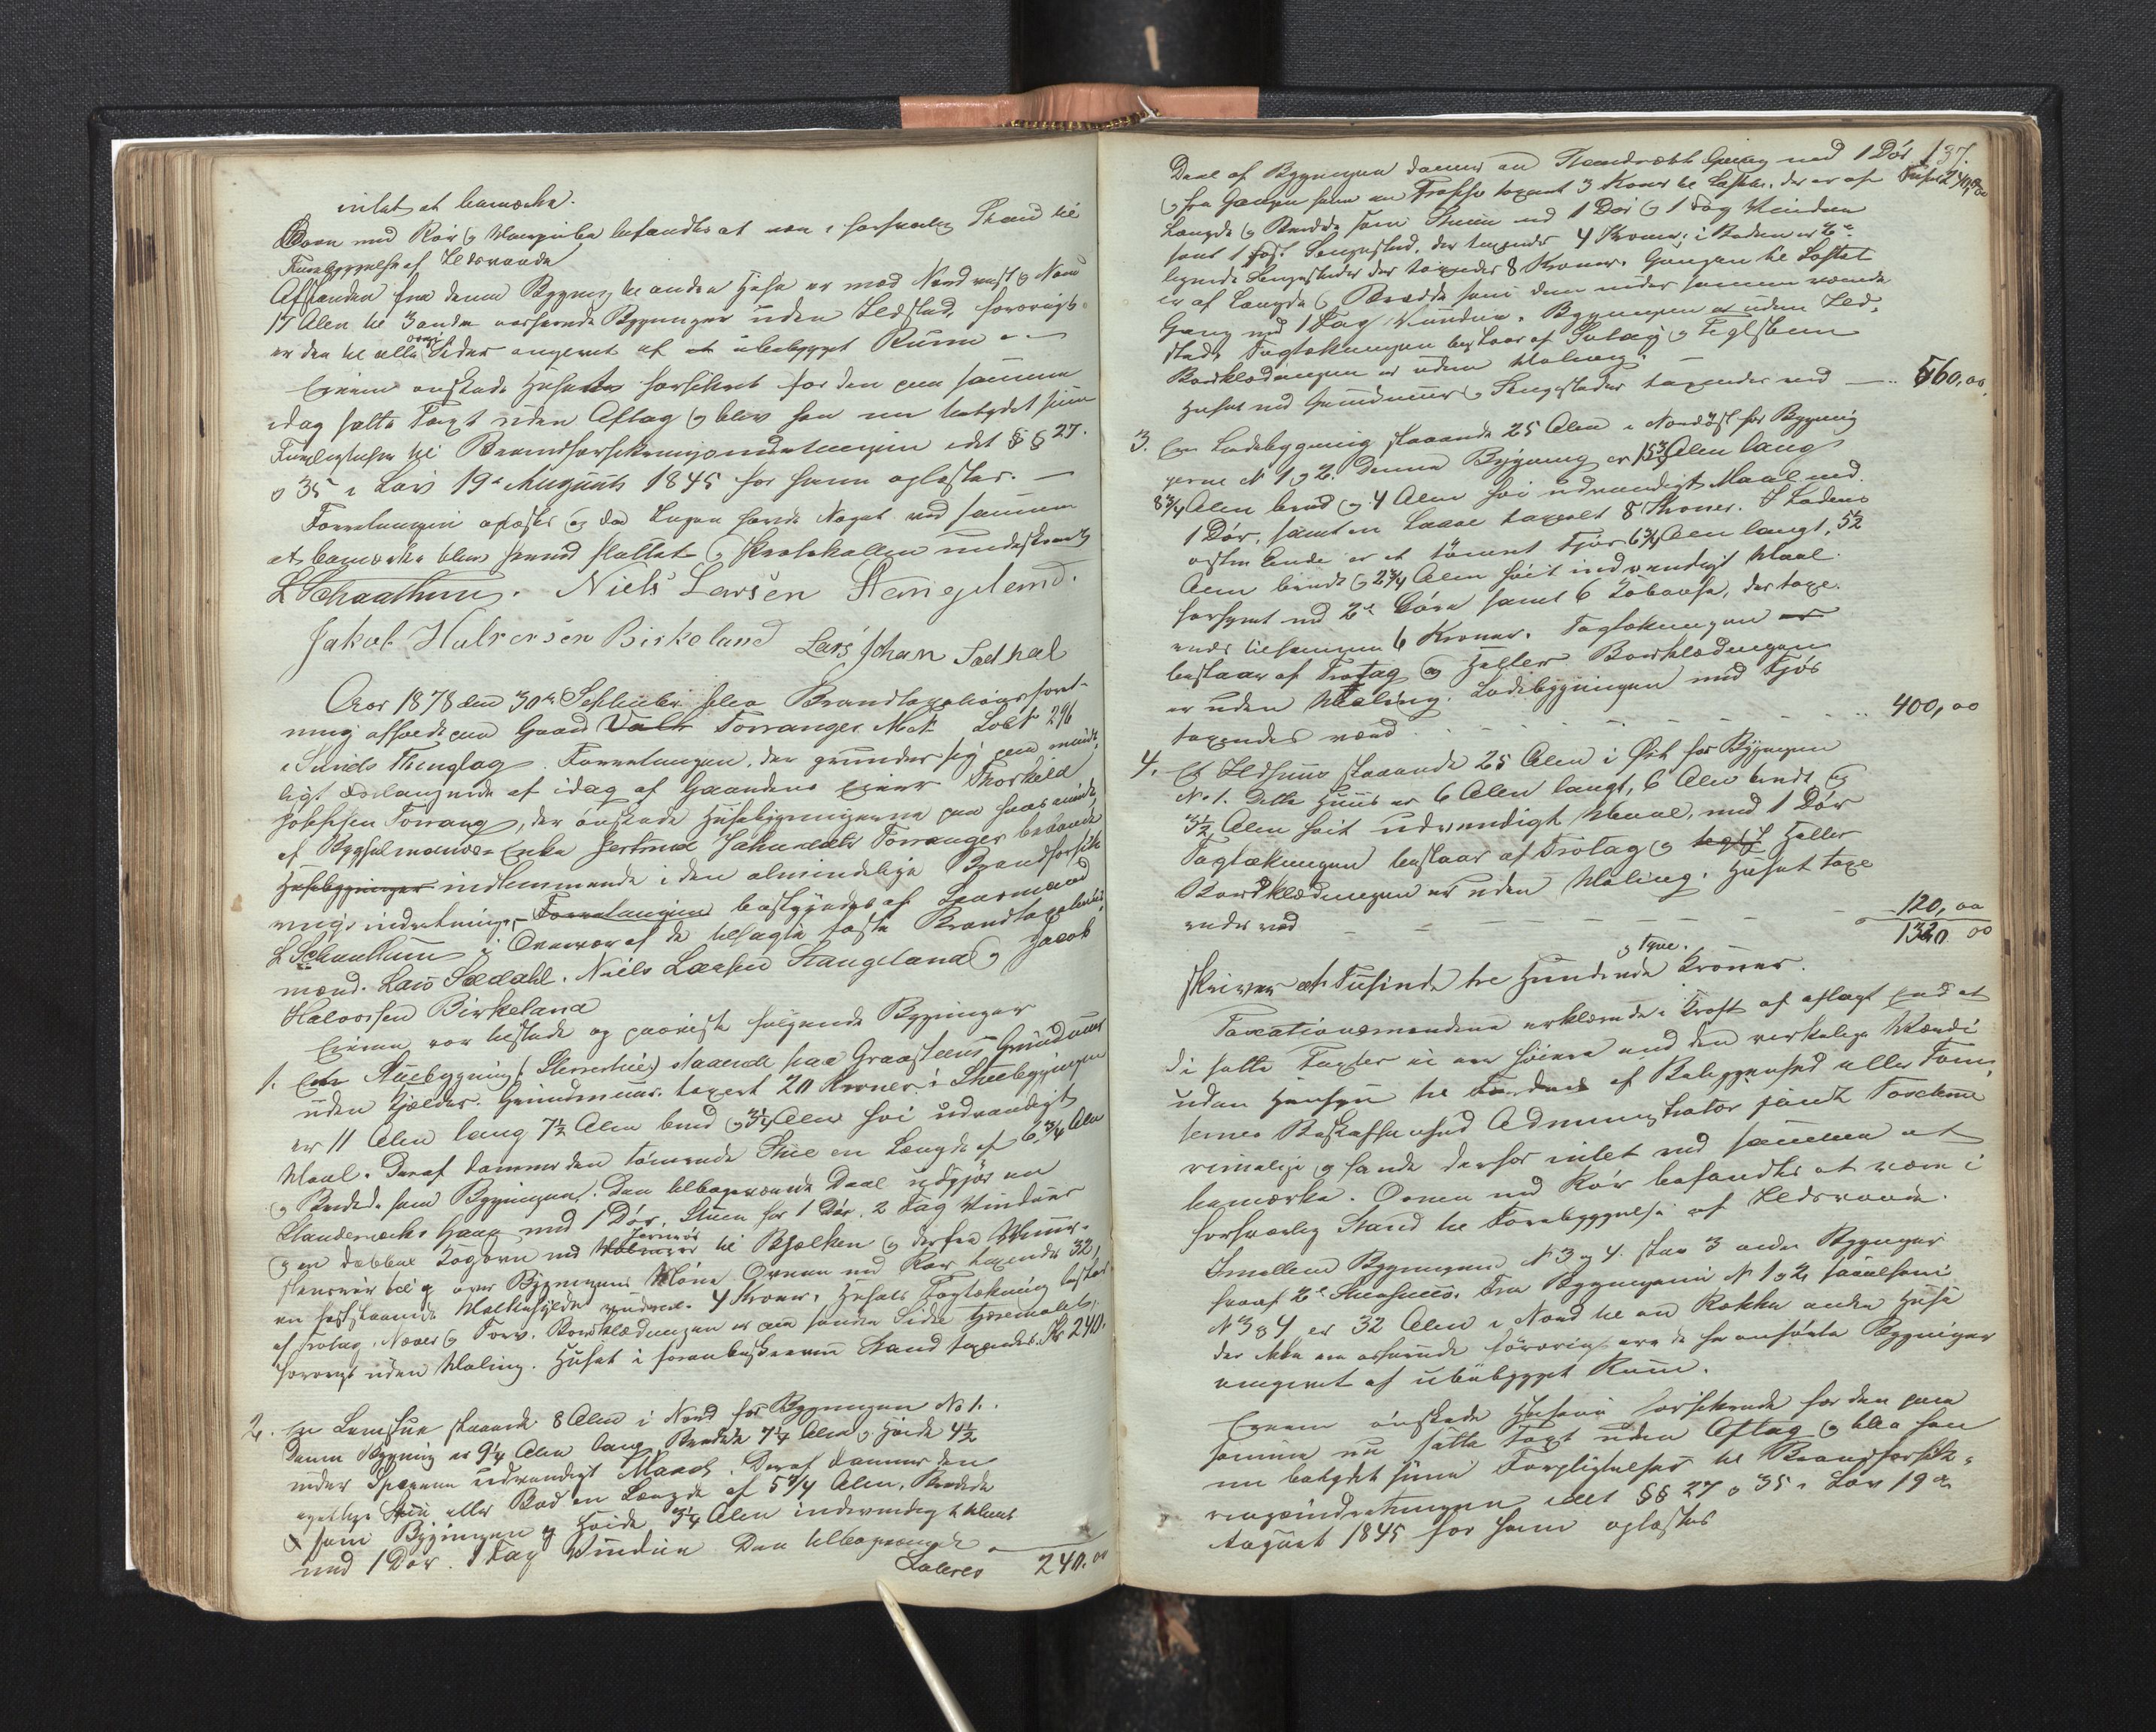 intet at bemærke.
Ovnen med Rør og befandtes at være i forsvarlig Stand til
Forebyggelse af Ildsvaade
Afstanden fra denne Bygning til andre Huse er mod Nordvest og Nord
17 Alen til 3 andre Bygninger uden Ildsted, forøvrigt
er den til alle Sider omgivet af et ubebygget Rum
Eieren ønskede Huset forsikret for den paa samme
idag satte Taxt uden Aftag og blev han nu betydet sine
Forpligtelser til Brandforsikringsindretningen idet §§ 27
og 35 i Lov 19de August 1845 for ham oplæstes.
Forretningen oplæstes og da Ingen havde Noget ved samme
at bemærke blev sluttet og Protokollen underskrevet
L Schaathun. Niels Larsen Stangeland.
Jakob Halvorsen Birkeland Lars Johan Sædhal
Aar 1878 den 30te September blev Brandtaxationsforret-
ning afholdt paa Gaard Torranger Mat. Løb. 296
i Sunds Thinglag. Forretningen, der grunder sig paa mundt-
ligt Forlangende af idag af Gaardens Eier Thorkild
Torrang, der ønskede Husebygningerne paa
af Enke Gertrud Johnsdatter Torranger
Husebygninger indlemmede i den almindelige Brandforsik-
ringsindretning. Forretningen bestyredes af Lensmand
L Schaathun i Overvær af de tilsagte faste Brandtaxations-
mænd. Lars Sædahl. Niels Larsen Stangeland og Jacob
Halvorsen Birkeland
Eieren var tilstede og paaviste følgende Bygninger
1. En Stuebygning staaende paa Graasteens Grundmuur
uden Kjelder. Grundmuur taxert 20 Kroner. Stuebygningen
er 11 Alen lang 7½ Alen bred og 3¼ Alen høi udvendigt
Maal. Deraf danner den tømrede Stue en Længde af 6¾ Alen
og Bredde som Bygningen. Den tilbageværende Deel udgjør en
Standerverks Gang med 1 Dør. Stuen har 1 Dør, 2 Fag Vinduer
og en dobbel Kogovn med Jernrør til Bjælken og derfra Muur-
steensrør til og over Bygningens Møne Ovnen med Rør taxeredes 32,
en faststaaende 4 Kroner. Husets Tagtækning bestaar
af Trotag, Næver og Torv. Bordklædningen er paa søndre Side tjæremalet
forøvrigt uden Maling. Huset i foranbeskrevne Stand taxeredes Kr 240.
2. En Lemstue staaende 8 Alen i Nord for Bygningen No 1.
Denne Bygning er 9¼ Alen lang, Bredde 7¼ Alen og Høide 4½
under Sperrene udvendigt Maal. Deraf danner den
egentlige Stue eller Bod en Længde af 5¾ Alen, Bredde
som Bygningen og Høide 3¼ Alen indvendigt Maal
med 1 Dør. 1 Fag Vindue Den tilbageværende
Lateres 240.00
137.
Deel af Bygningen danner en Standværks Gang med 1 Dør Transport 240,00
og fra Gangen fører en Trappe taxert 3 Kroner til Loftet, der er af
Længde og Bredde som Stuen med 1 Dør og 1 Fag Vindue
samt 1 fast Sengested, der taxeredes 4 Kroner; i Boden er 2de
lignende Sengesteder der taxeredes 8 Kroner. Gangen til Loftet
er af Længde og Bredde som den under samme værende
Gang med 1 Fag Vindue. Bygningen er uden Ild-
sted. Tagtækningen bestaar af Sutag og Teglsteen
Bordklædningen er uden Maling.
Huset med Grundmuur og Sengesteder taxeredes ved 560,00
3. En Ladebygning staaende 25 Alen i Nordøst for Bygning
gerne No 1 og 2. Denne Bygning er 15¾ Alen lang
8¾ Alen bred og 4 Alen høi udvendigt Maal med
1 Dør, samt en Laave taxeret 8 Kroner. I Ladens
østre Ende er et tømret Fjøs 6¾ Alen langt, 5½
Alen bredt og 2¾ Alen høit indvendigt Maal
forsynet med 2de Døre samt 6 Kobaase, der taxe-
redes tilsammen 6 Kroner. Tagtækningen er
bestaar af Trotag og Heller Bordklædningen
er uden Maling. Ladebygningen med Fjøs
taxeredes ved 400,00
4. Et Ildhuus staaende 25 Alen i Øst for Bygningen
No 1. Dette Huus er 6 Alen langt, 6 Alen bredt og
3½ Alen høit udvendigt Maal, med 1 Dør
Tagtækningen bestaar af Trotag og Heller
Bordklædningen er uden Maling. Huset taxe
redes ved 120,00
1320 00
Skriver et Tusinde tre Hundrede og Tyve Kroner.
Taxationsmændene erklærede i Kraft af aflagt Eed at
de satte Taxter ei ere høiere end den virkelige Værdi
uden Hensyn til Fordele af Beliggenhed eller Tom-
ternes Beskaffenhed Administrator fandt Taxterne
rimelige og havde derfor intet ved samme at
bemærke. Ovnen med Rør befandtes at være i
forsvarlig Stand til Forebyggelse af Ildsvaade.
Imellem Bygningerne No 3 og 4 staa 3 andre Bygninger
hvoraf 2de Stuehuse. Fra Bygningerne No 1 og 2 saavelsom
No 3 og 4 er 32 Alen i Nord til en Række andre Huse
der ikke ere forøvrigt ere de her anførte Bygninger
omgivet af ubebygget Rum.
Eieren ønskede Husene forsikrede for den paa
samme nu satte Taxt uden Aftag og blev han
nu betydet sine Forpligtelser til Brandforsik-
ringsindretningen idet §§ 27 og 35 i Lov 19de
August 1845 for ham oplæstes